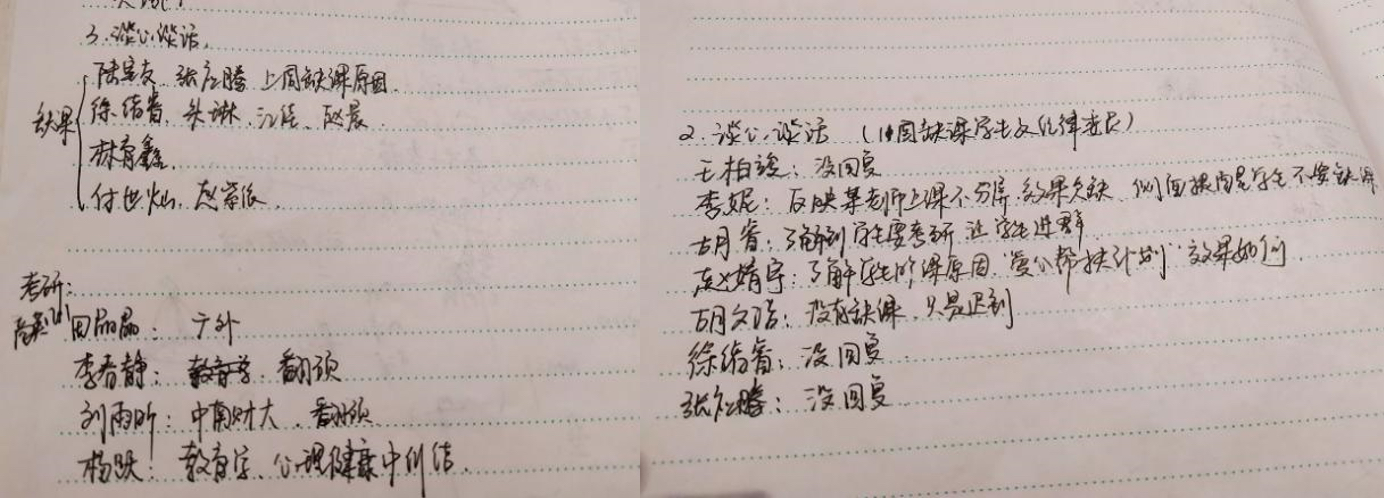 3. 谈心谈话.
陆宝友. 张应腾 上周缺课原因.
缺课 徐绮睿. 朱琳. 江佳、赵晨.
林育鑫.
付世灿. 赵紫依.
考研:
商英201 田晶晶: 广外
李春静: 教育学. 翻硕
刘雨昕: 中南财大. 翻硕
杨跃: 教育学、心理健康中纠结.
2. 谈心谈话 (11周缺课学生及纪律委员)
王柏琼: 没回复
李妮: 反映某老师上课不分层. 效果欠缺. 侧面提醒学生不要缺课
胡睿: 了解到学生要考研 让学生进群
赵婧宇: 了解学生旷课原因. "爱心帮扶计划" 效果如何
胡文洁: 没有缺课. 只是迟到
徐绮睿: 没回复
张应腾: 没回复